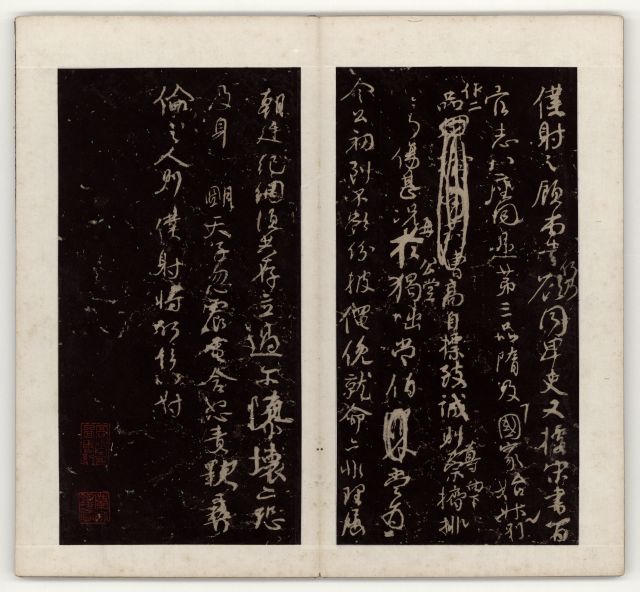 僕射之顧尚書何乃欲同卑吏又據宋書百
官志八座同是第三品隋及國家始升別
作二品高自標致誠則尊崇向下擠排
無乃傷甚況再於公堂獨咄常伯當為
令公初到不欲紛披僶俛就命亦非理屈
朝廷紀綱須共存立過爾隳壞亦恐
及身 明天子忽震電含怒責斁彝
倫之人則僕射將何辭以對